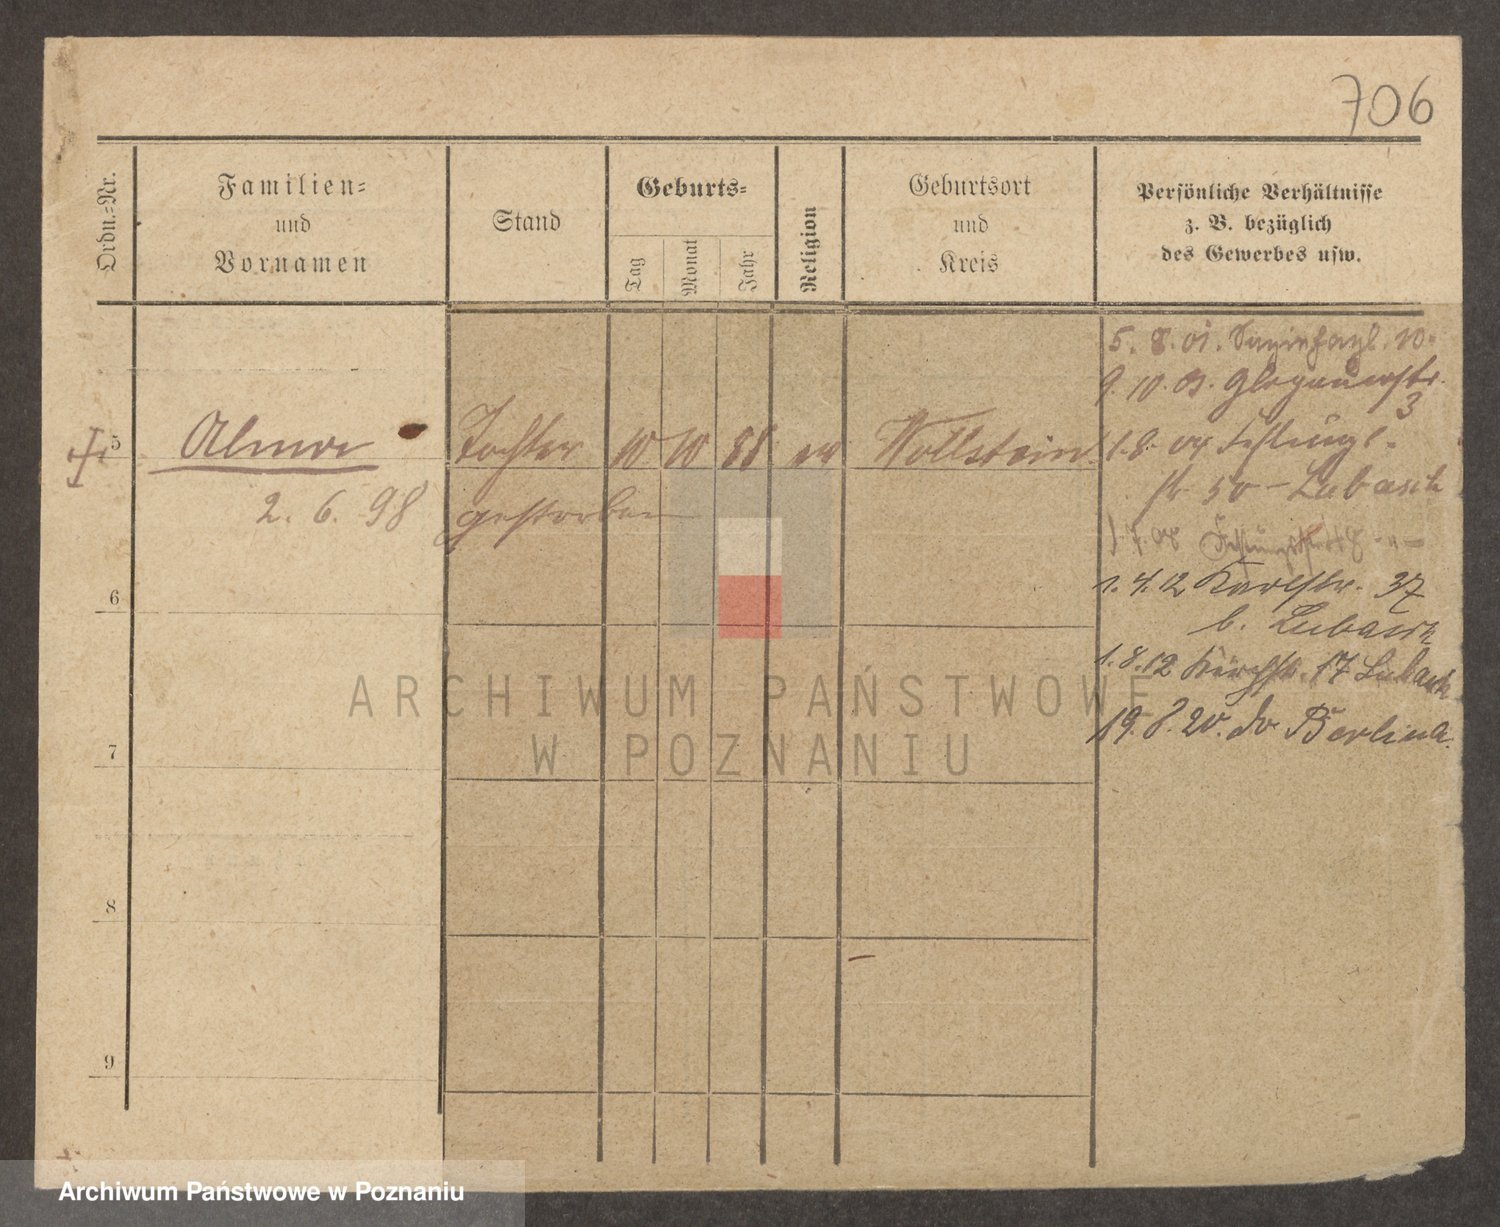 706
Ordn.=Nr.
Familien=
und
Vornamen
Stand
Geburts=
Tag
Monat
Jahr
Religion
Geburtsort
und
Kreis
Persönliche Verhältnisse
z. B. bezüglich
des Gewerbes usw.
5. 8. 01. 10.
9. 10. 03. Glogauerstr.
3
5 Alma Tochter 10 10 88 ev Wollstein
1. 8. 04
2. 6. 98 gestorben
50 - Lubasch
1. 7. 08
1. 4. 12 Karlstr. 37
b. Lubasch
6
1. 8. 12 Kirchstr. 17 Lubasch
19. 8. 20. do Berlina.
7
8
9
ARCHIWUM PAŃSTWOWE
W POZNANIU
Archiwum Państwowe w Poznaniu